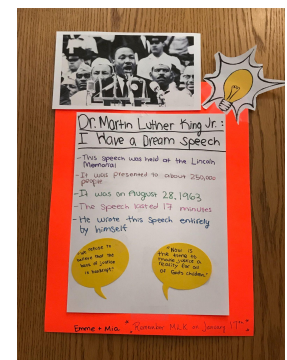 Dr. Martin Luther King Jr.:
I Have a Dream Speech
-This speech was held at the Lincoln
Memorial
-It was presented to about 250,000
people
-It was on August 28, 1963
-The Speech lasted 17 minutes
-He wrote this speech entirely
by himself
"We refuse to
believe that the
bank of justice
is bankrupt."
"Now is
the time to
make justice a
reality for all
of God's children."
Emme + Mia
*Remember MLK on January 17th*